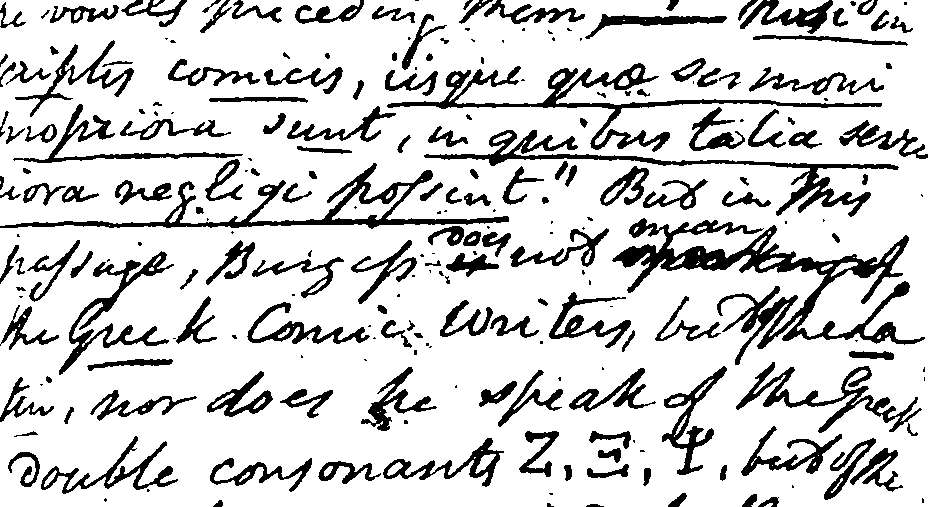 re vowels preceding them, Nisi in
scriptis comicis, iisque quæ sermoni
propriora sunt, in quibus talia seve
riora negligi possint." But in this
passage, Burgess does not mean
the Greek Comic Writers, but of the La
tin, nor does he speak of the Greek
double consonants Z, Ξ, Ψ, but of the